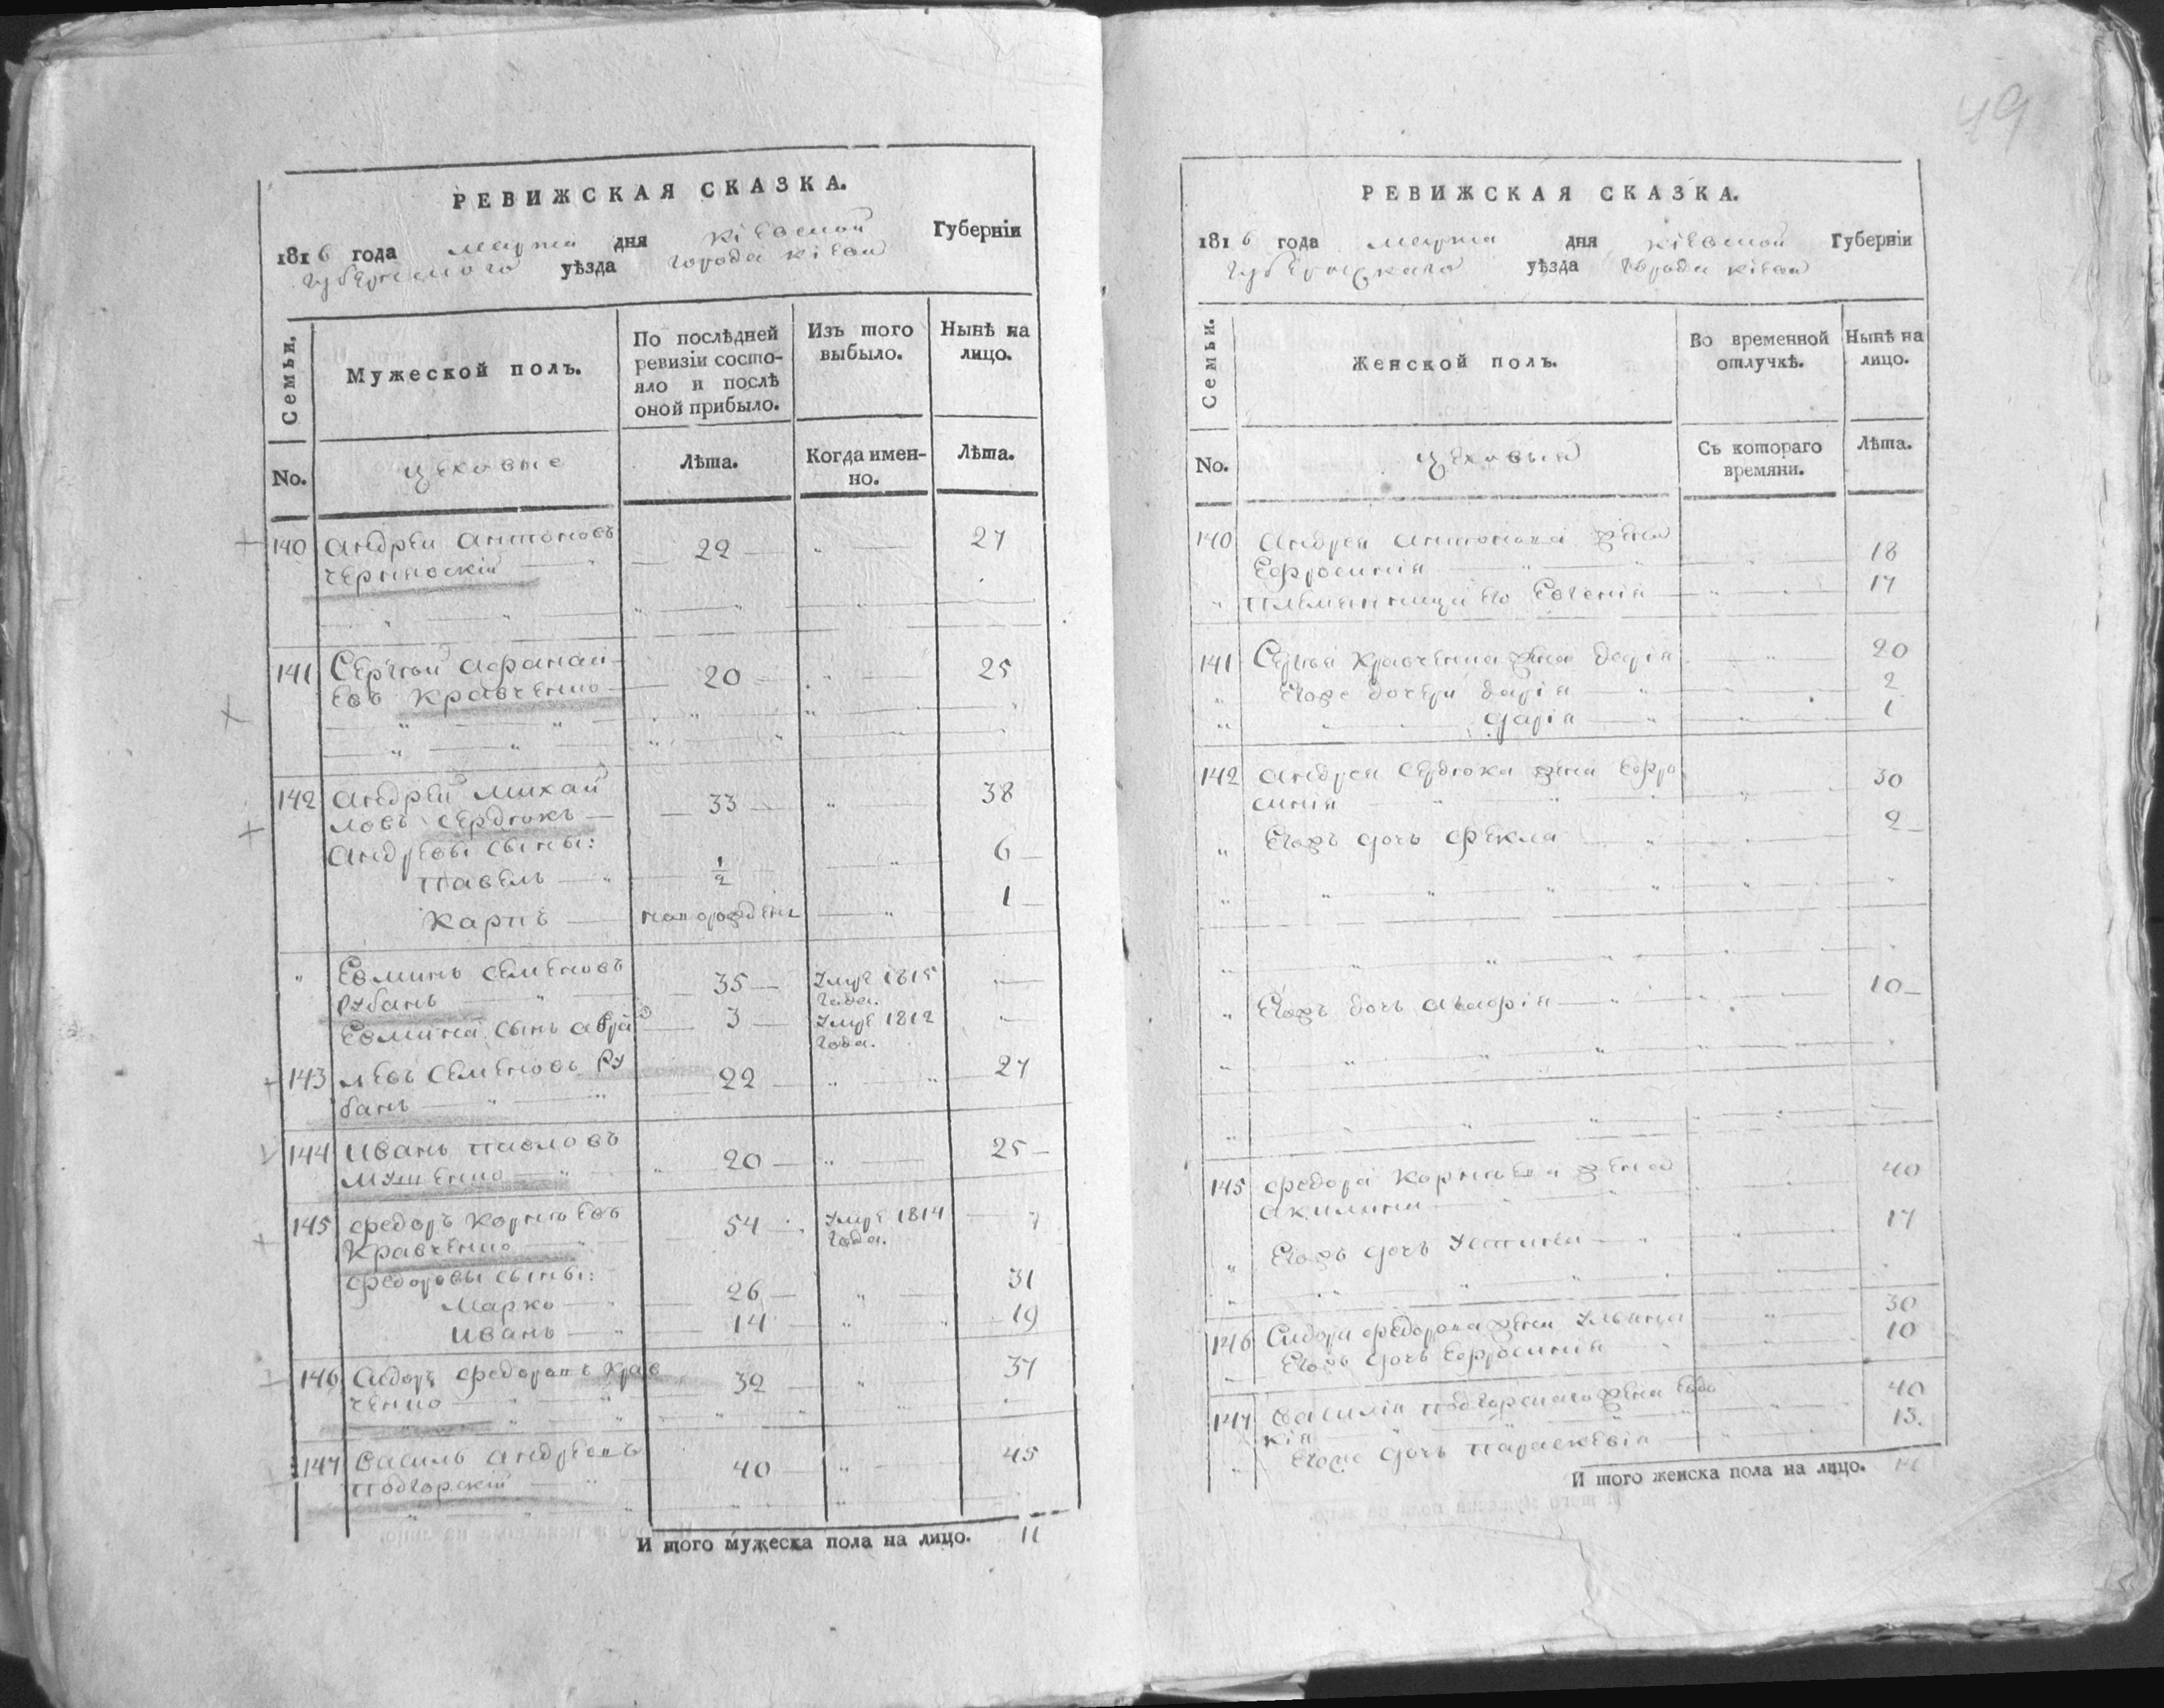 49
РЕВИЖСКАЯ СКАЗКА.
1816 года марта дня Кіевской Губерніи
Губернскаго уѣзда города Кіева
Семьи.
Мужеской полъ.
По послѣдней ревизіи состо-
яло и послѣ
оной прибыло.
Изъ того
выбыло.
Нынѣ на
лицо.
No.
цеховые
Лѣта.
Когда имен-
но.
Лѣта.
140 Андрей Антоновъ
Чернявскій 22 27
141 Сергѣй Афанаси-
евъ Кравченко 20 25
142 Андрей Михай
ловъ Сердюкъ 33 38
Андреевы сыны:
Павелъ 1/2 6
Карпъ новорожденъ 1
Семеновъ
Рубанъ 35 Умре 1815
года.
сынъ 3 Умре 1812
года.
143 Левъ Семеновъ Ру
банъ 22 27
144 Иванъ Павловъ
20 25
145 Федоръ Корнѣевъ
Кравченко 54 Умре 1814
года.
Федоровы сыны:
Марко 26 31
Иванъ 14 19
146 Сидоръ Федоровъ Крав
ченко 32 37
147 Василь Андреевъ
Подгорскій 40 45
И того мужеска пола на лицо. 11
РЕВИЖСКАЯ СКАЗКА.
1816 года марта дня Кіевской Губерніи
Губернскаго уѣзда города Кіева
Семьи.
Женской полъ.
Во временной
отлучкѣ.
Нынѣ на
лицо.
No.
цеховыя
Съ котораго
времяни.
Лѣта.
140 Андрея Антонова жена
Ефросинія 18
племянница его Евгенія 17
141 Сергѣя Кравченка жена Дарія 20
Егоже дочери Дарія 2
Дарія 1
142 Андрея Сердюка жена Ефро
синія 30
Егожъ дочь Фекла 2
Егожъ дочь Агафія 10
145 Федора Корнѣева жена
Акилина 40
Егожъ дочь Устина 17
146 Сидора Федорова жена Ульяна 30
Егожъ дочь Ефросинія 10
147 Василія Подгорскаго жена Евдо
кія 40
Егоже дочь Параскевія 13.
И того женска пола на лицо.